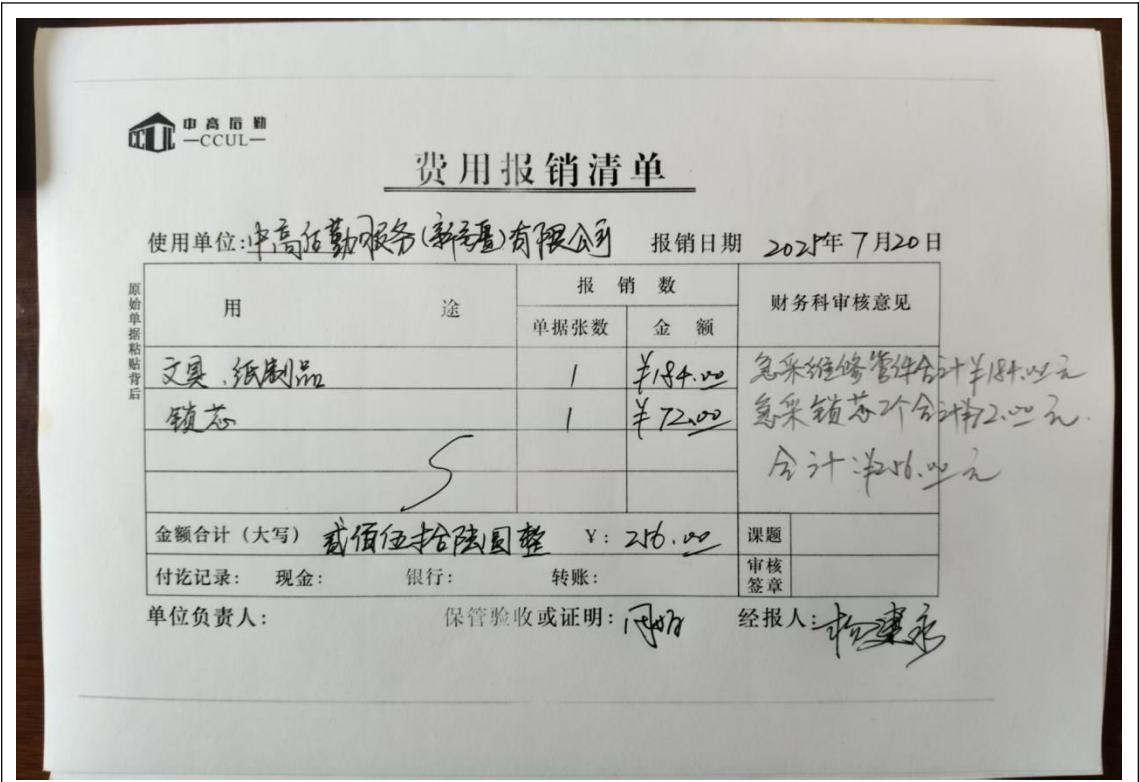 中高后勤
CCUL
—CCUL—
费用报销清单
使用单位:中高后勤服务(新疆)有限公司 报销日期 2025年7月20日
原始单据粘贴背后
用途 报销数 财务科审核意见
单据张数 金额
文具、纸制品 1 ¥184.00 急采维修管件合计¥184.00元
锁芯 1 ¥72.00 急采锁芯2个合计¥72.00元.
合计:¥256.00元
金额合计(大写) 贰佰伍拾陆圆整 ¥: 256.00 课题
付讫记录: 现金: 银行: 转账: 审核签章
单位负责人: 保管验收或证明: 经报人: